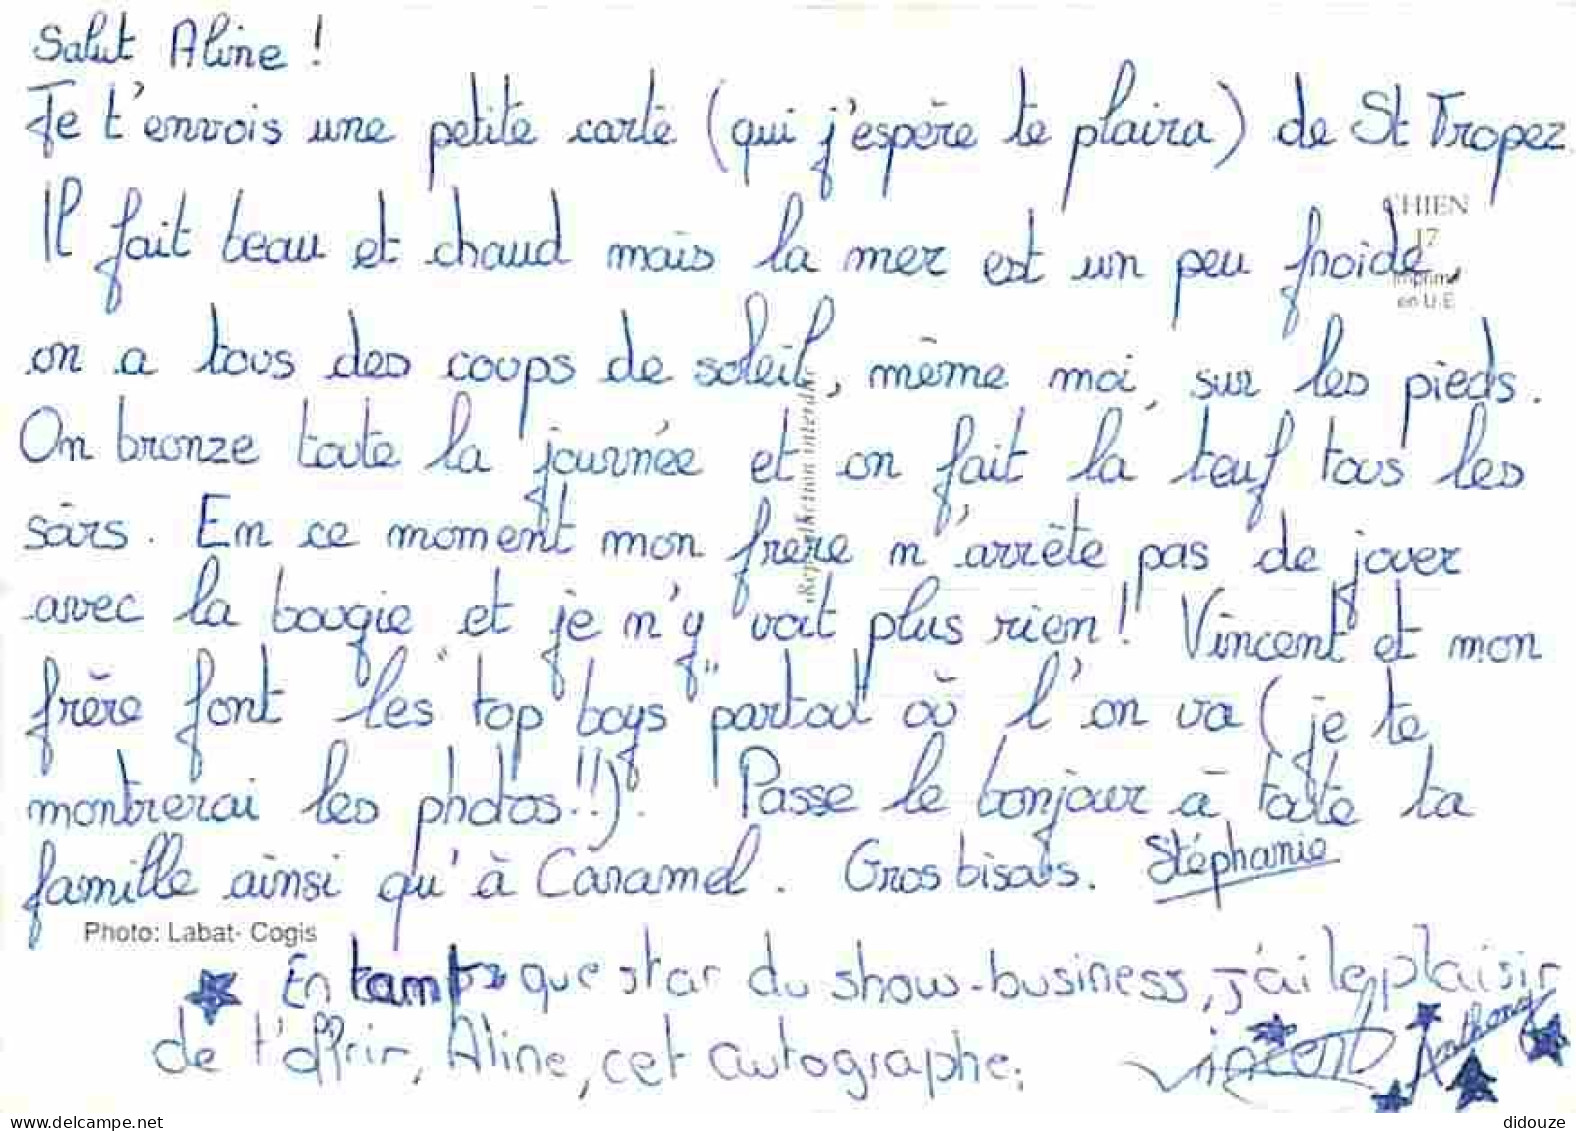 Salut Aline !
Je t'envois une petite carte (qui j'espère te plaira) de St Tropez
CHIEN
17
Il fait beau et chaud mais la mer est un peu froide,
Imprimé
en U.E
on a tous des coups de soleil, même moi, sur les pieds.
On bronze toute la journée et on fait la teuf tous les
soirs. En ce moment mon frère n'arrête pas de jouer
avec la bougie et je n'y voit plus rien ! Vincent et mon
Reproduction interdite
frère font les "top boys" partout où l'on va (je te
montrerai les photos!!). Passe le bonjour à toute ta
famille ainsi qu'à Caramel. Gros bisous. Stéphanie
Photo: Labat- Cogis
En tant que star du show-business, j'ai le plaisir
de t'offrir, Aline, cet autographe.
Vincent Anthony
delcampe.net
didouze